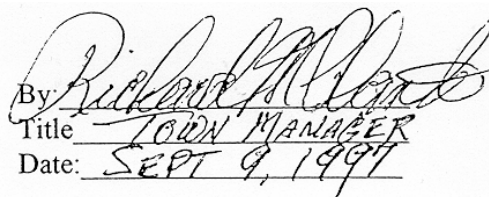 By: Richard
Title TOWN MANAGER
Date: SEPT 9, 1997